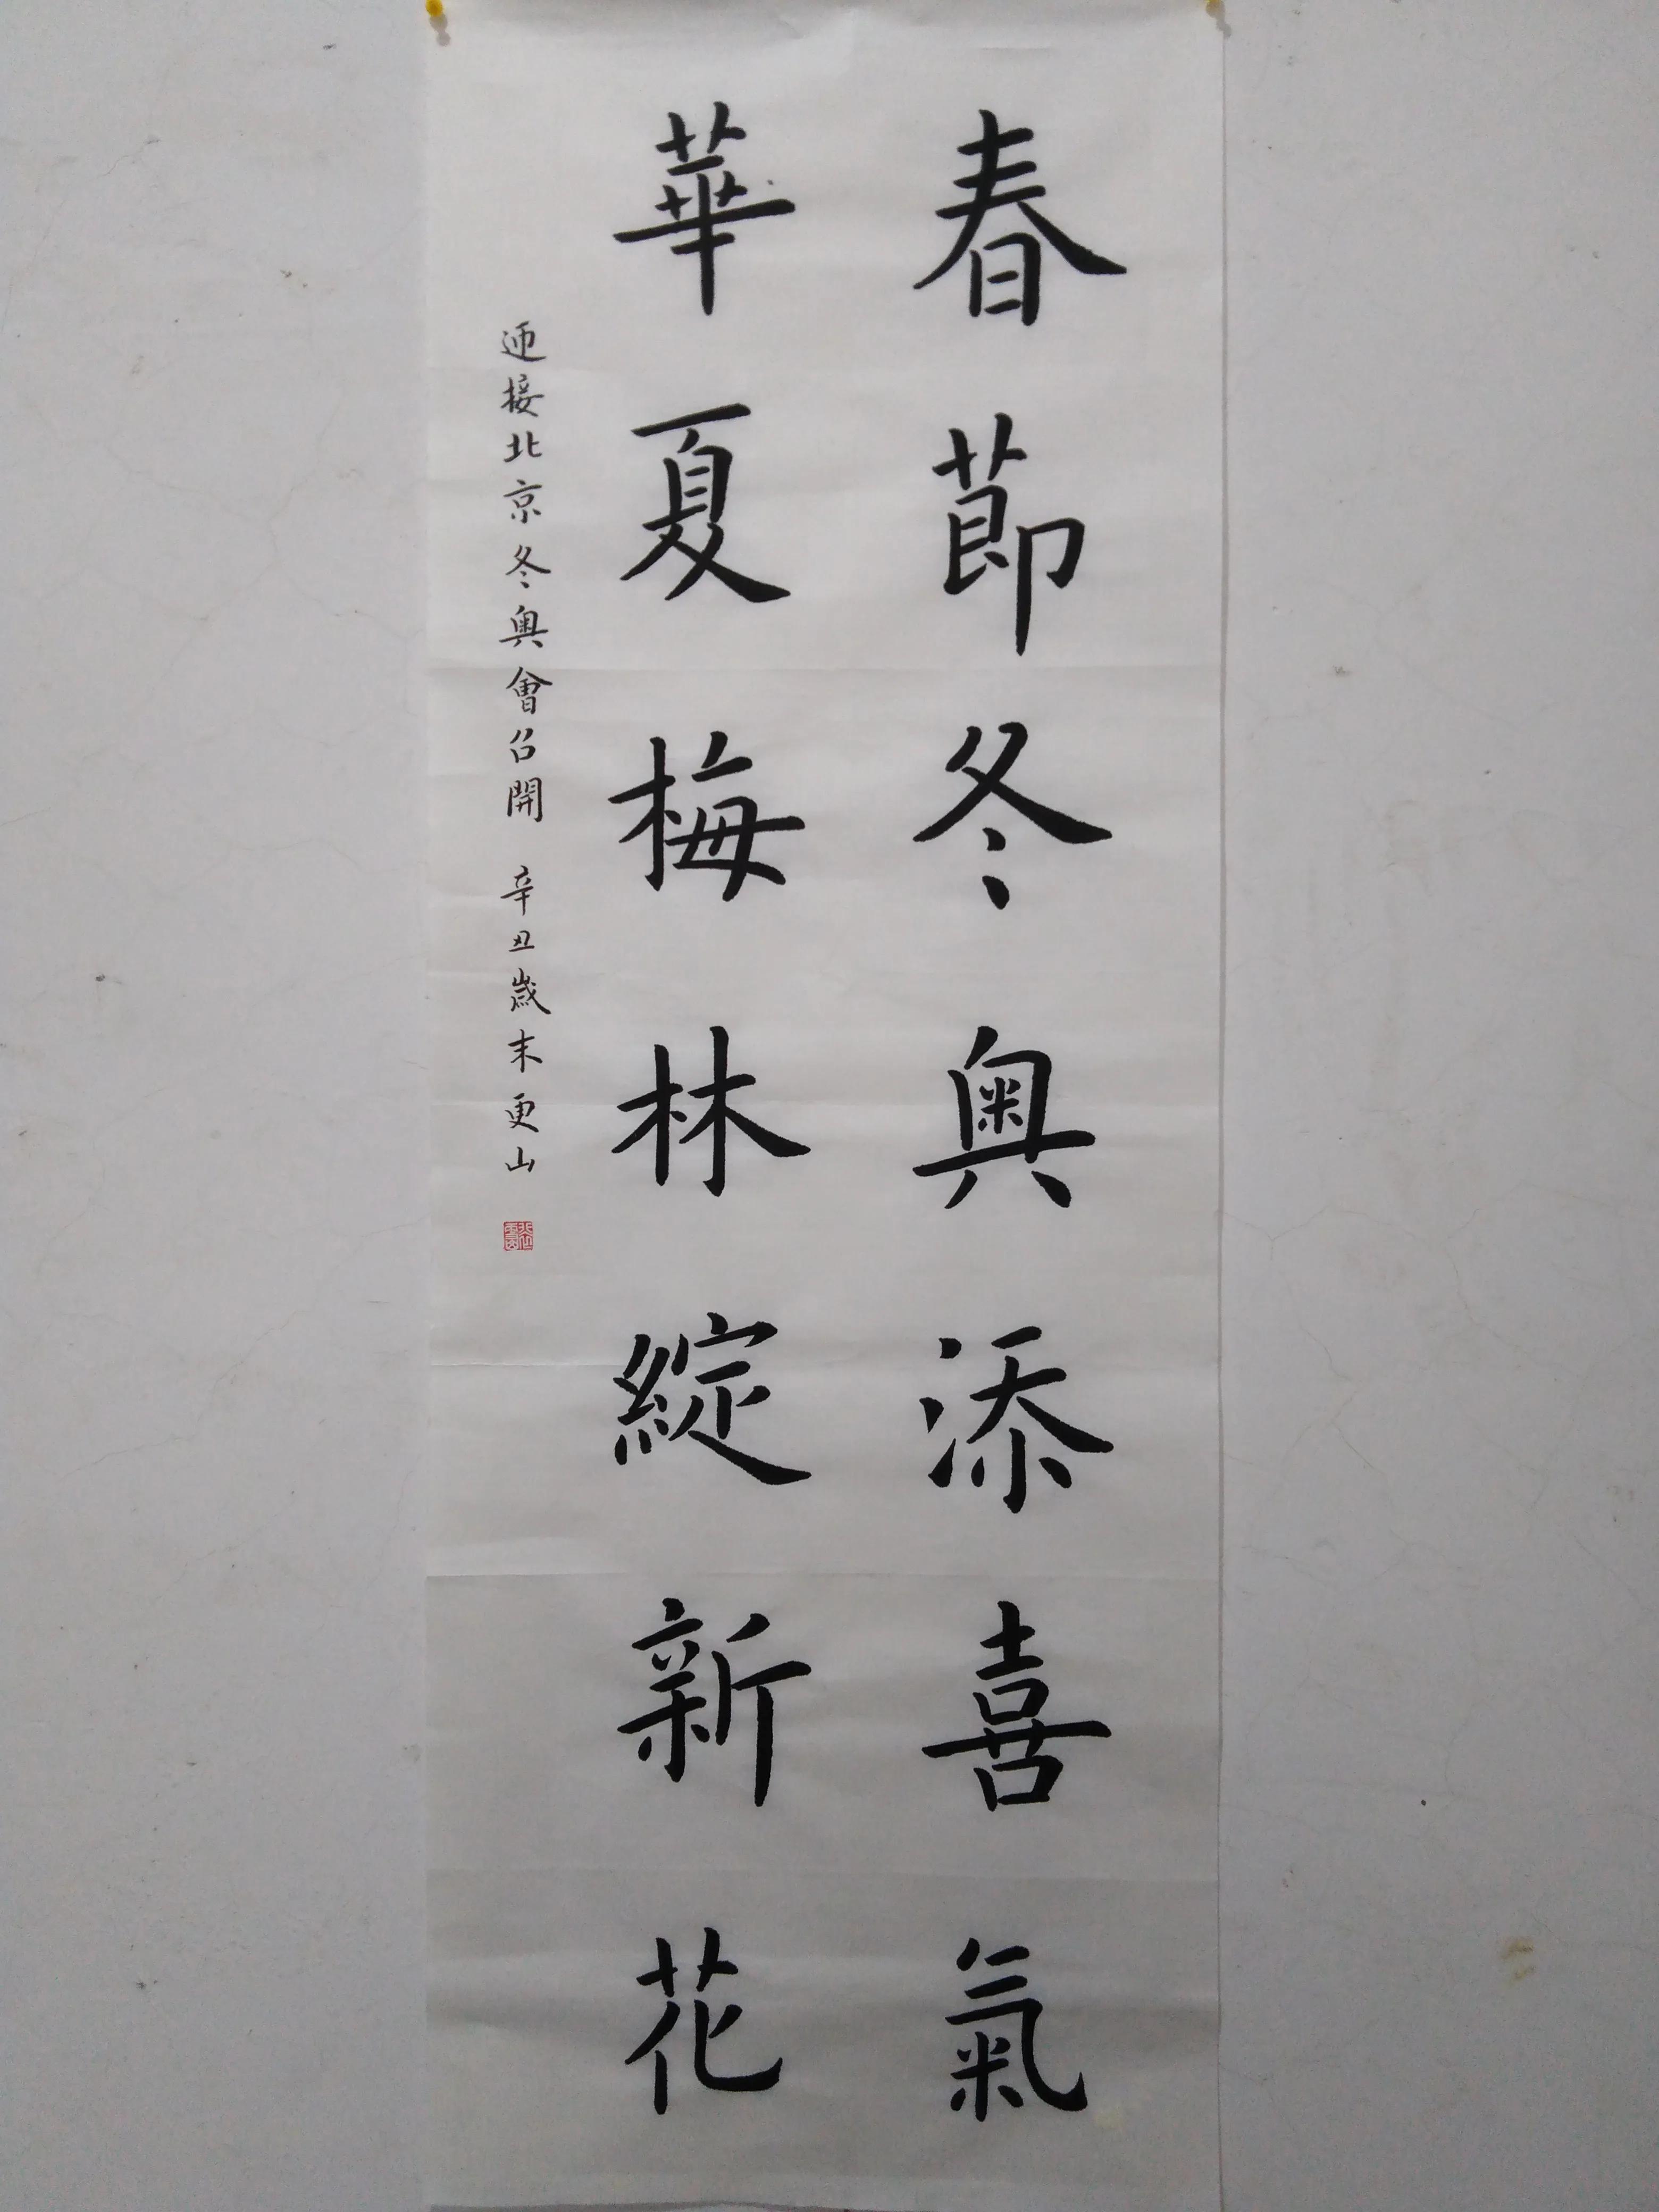 春節冬奥添喜氣
華夏梅林綻新花
迎接北京冬奥會召開 辛丑歲末更山